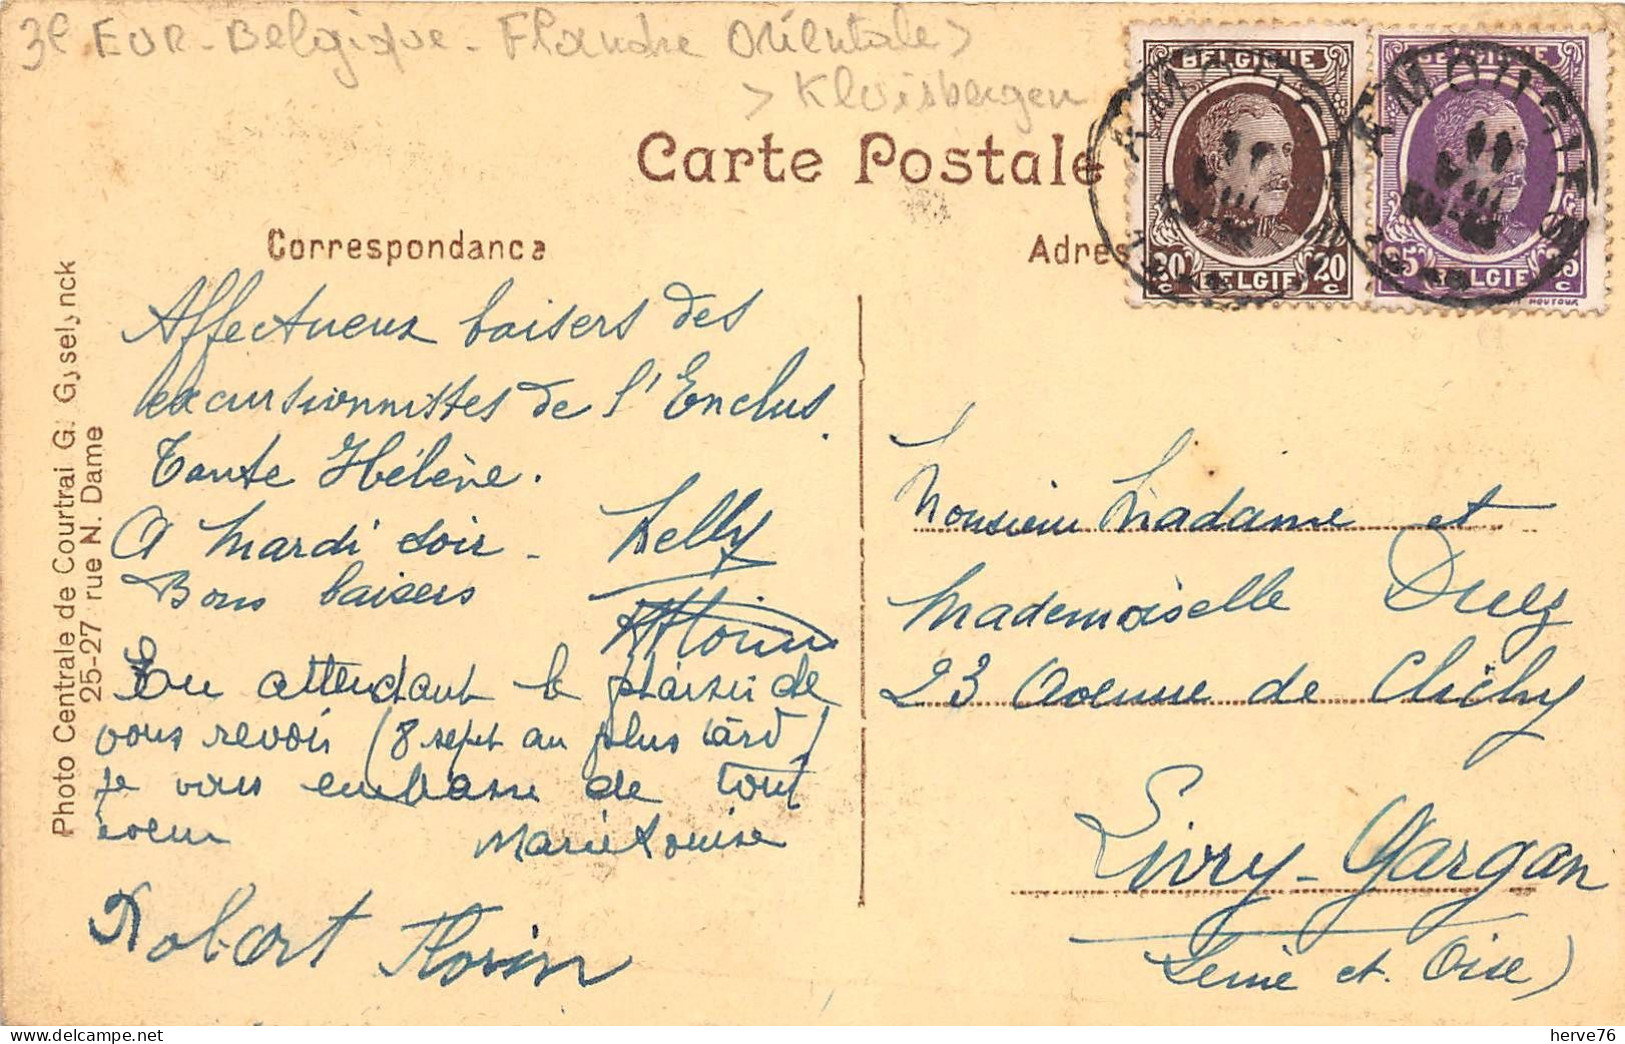 3e EUR - Belgique - Flandre Orientale >
> Kluisbergen
Carte Postale
Correspondance
Adres
BELGIQUE
20 c BELGIE 20 c
BELGIQUE
25 c BELGIE 25 c
HOUYOUX
AMOUGIES
AMOUGIES
Photo Centrale de Courtrai G. Gyselynck
25-27 rue N. Dame
Affectueux baisers des
excursionnistes de l'Enclus.
Tante Hélène.
A mardi soir - Nelly
Bons baisers
Florin
En attendant le plaisir de
vous revoir (8 sept au plus tard)
je vous embrasse de tout
coeur Marie Louise
Robert Florin
Monsieur Madame et
Mademoiselle
23 Avenue de Clichy
Livry-Gargan
Seine et Oise)
herve76